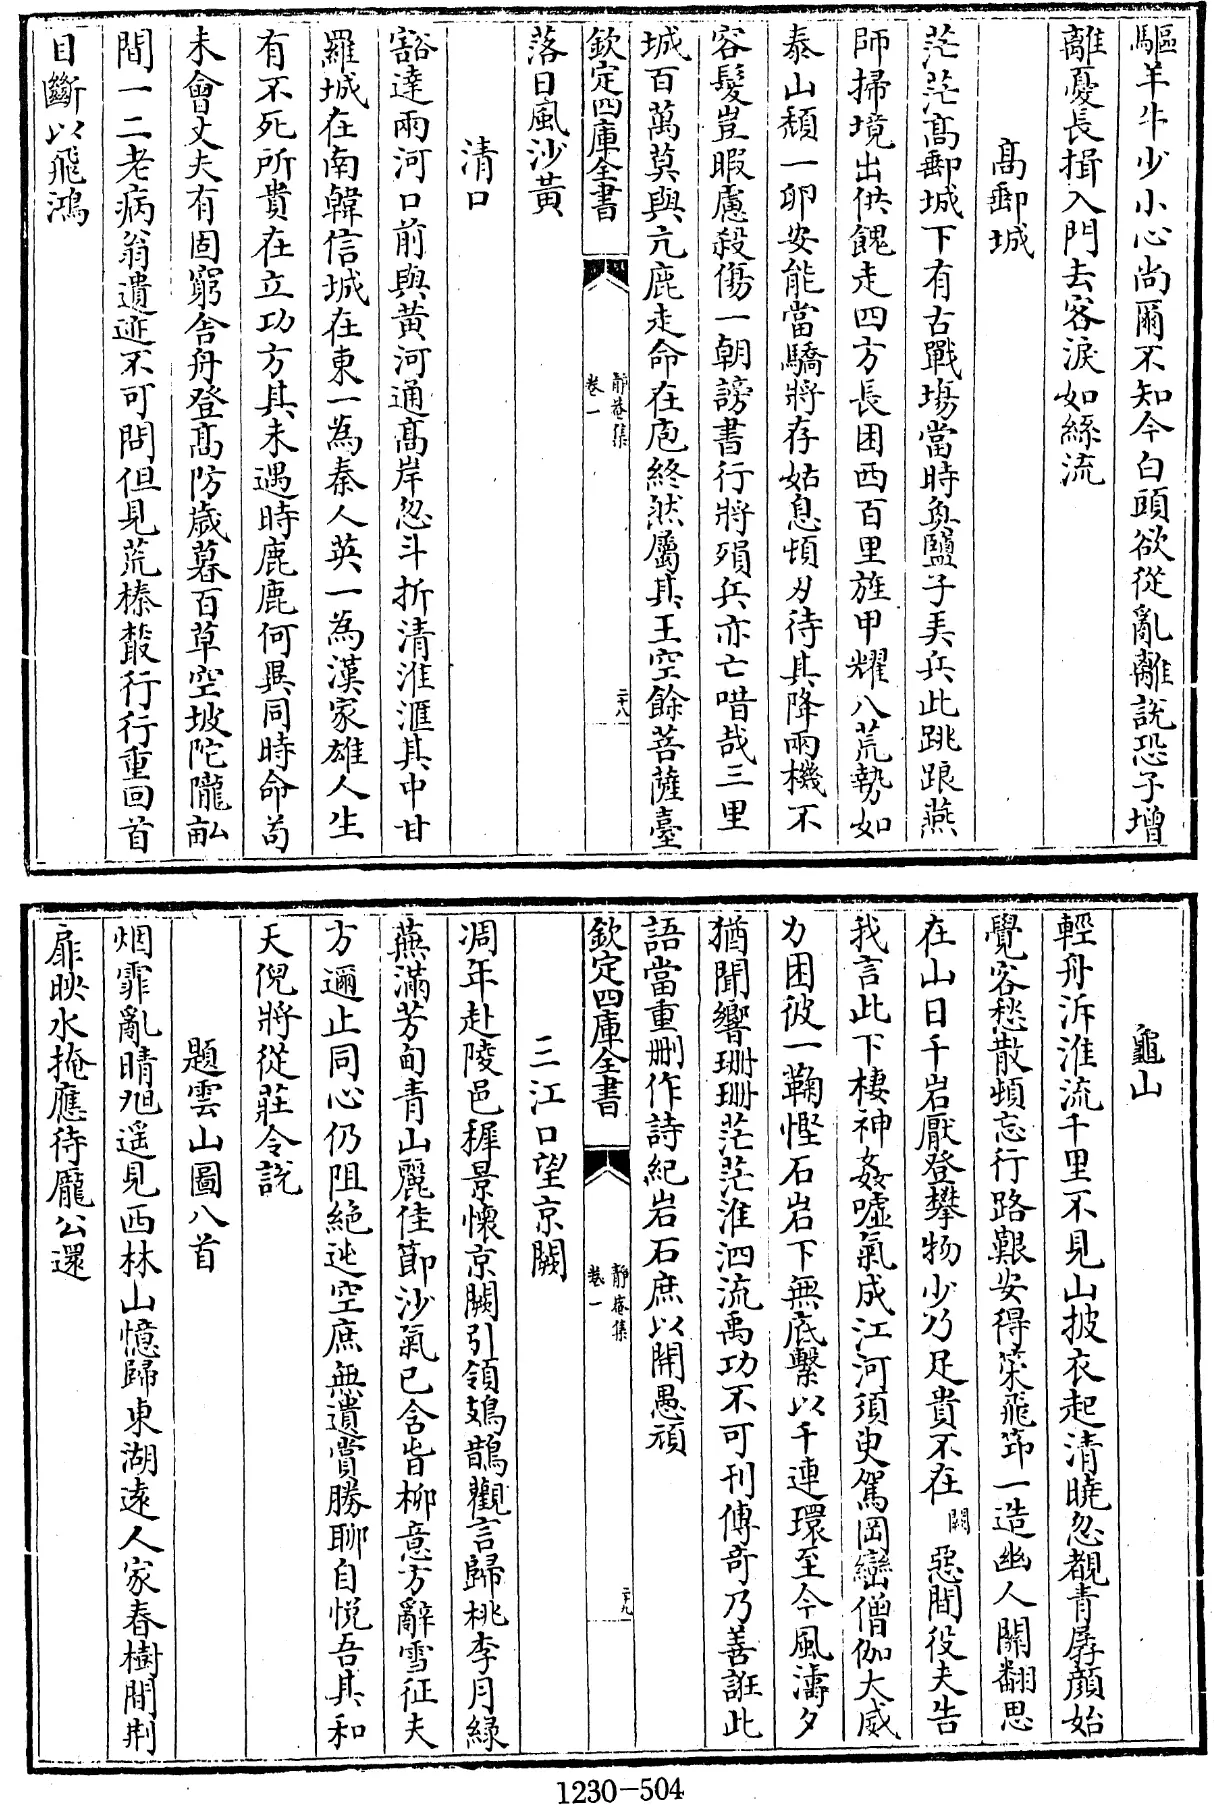 驅羊牛少小心尚爾不知今白頭欲從亂離說恐子增
離憂長揖入門去客淚如絲流
高郵城
茫茫高郵城下有古戰塲當時魚鹽子弄兵此跳踉燕
師掃境出供餽走四方長困西百里旌甲耀八荒勢如
泰山頽一卵安能當驕將存姑息頓刃待其降兩機不
容髮豈暇慮殺傷一朝謗書行將殞兵亦亡唶哉三里
城百萬莫與亢鹿走命在庖終然屬其王空餘菩薩臺
欽定四庫全書
靜菴集
卷一
二十八
落日風沙黃
清口
豁達兩河口前與黄河通高岸忽斗折清淮滙其中甘
羅城在南韓信城在東一為秦人英一為漢家雄人生
有不死所貴在立功方其未遇時鹿鹿何異同時命茍
未會丈夫有固窮舍舟登高防歲暮百草空坡陀隴畝
間一二老病翁遺迹不可問但見荒榛藂行行重回首
目斷以飛鴻
龜山
輕舟泝淮流千里不見山披衣起清曉忽覩青孱顔始
覺客愁散頓忘行路艱安得策飛笻一造幽人關翻思
在山日千岩厭登攀物少乃足貴不在闕惡間役夫告
我言此下棲神姦嘘氣成江河須臾駕岡巒僧伽大威
力困彼一鞠慳石岩下無底繫以千連環至今風濤夕
猶聞響珊珊茫茫淮泗流禹功不可刊傳奇乃善誑此
語當重刪作詩紀岩石庶以開愚頑
欽定四庫全書
靜菴集
卷一
二十九
三江口望京闕
凋年赴陵邑穉景懷京闕引領鳷鵲觀言歸桃李月緑
蕪滿芳甸青山麗佳節沙氣已含皆柳意方辭雪征夫
方邇止同心仍阻絶迆空庶無遺賞勝聊自悅吾其和
天倪將從莊令說
題雲山圖八首
烟霏亂晴旭遥見西林山憶歸東湖遠人家春樹間荆
扉映水掩應待龎公還
1230-504